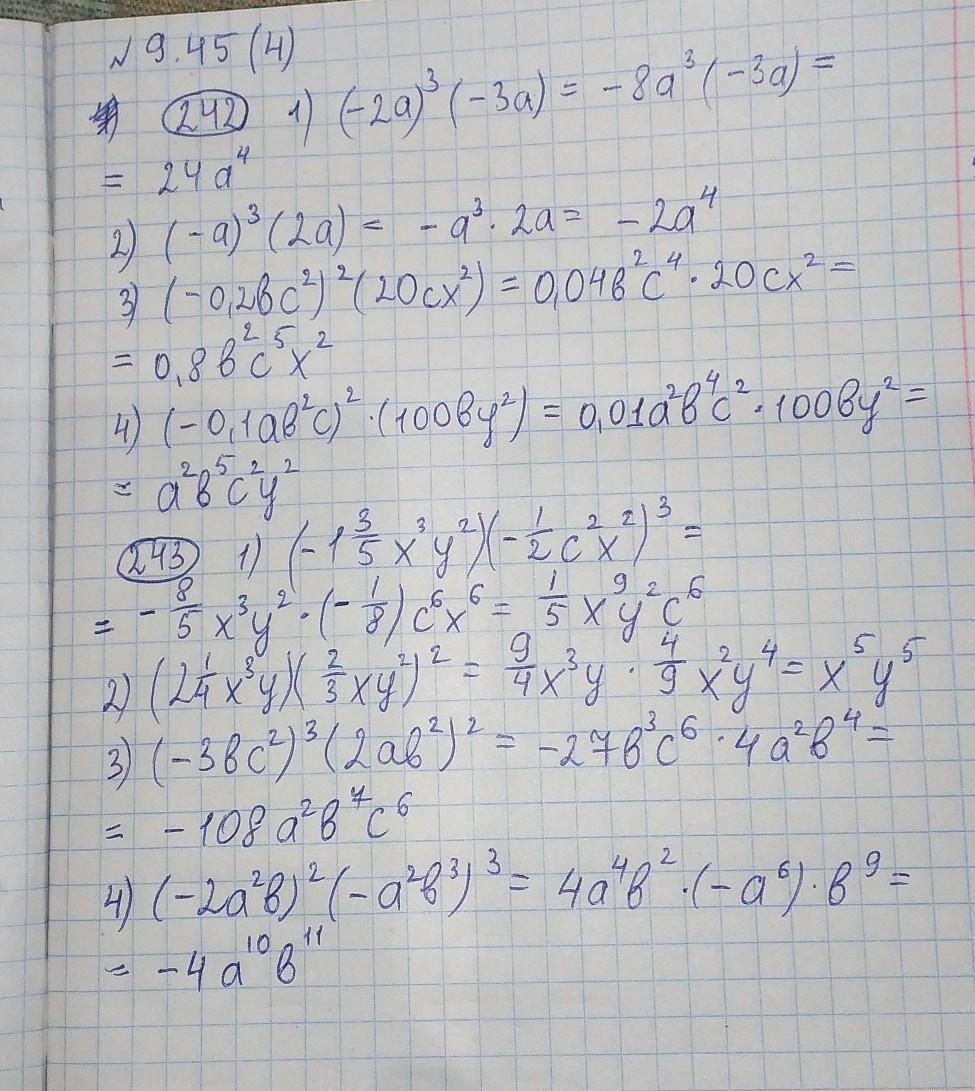 № 9.45 (4)
242 1) (-2a)³ (-3a) = -8a³ (-3a) =
= 24a⁴
2) (-a)³ (2a) = -a³ · 2a = -2a⁴
3) (-0,2bc²)² (20cx²) = 0,04b²c⁴ · 20cx² =
= 0,8b²c⁵x²
4) (-0,1ab²c)² · (100by²) = 0,01a²b⁴c² · 100by² =
= a²b⁵c²y²
243 1) (-1 3/5 x³y²)(-1/2 c²x²)³ =
= -8/5 x³y² · (-1/8) c⁶x⁶ = 1/5 x⁹y²c⁶
2) (2 1/4 x³y)(2/3 xy²)² = 9/4 x³y · 4/9 x²y⁴ = x⁵y⁵
3) (-3bc²)³ (2ab²)² = -27b³c⁶ · 4a²b⁴ =
= -108a²b⁷c⁶
4) (-2a²b)² (-a²b³)³ = 4a⁴b² · (-a⁶) · b⁹ =
= -4a¹⁰b¹¹